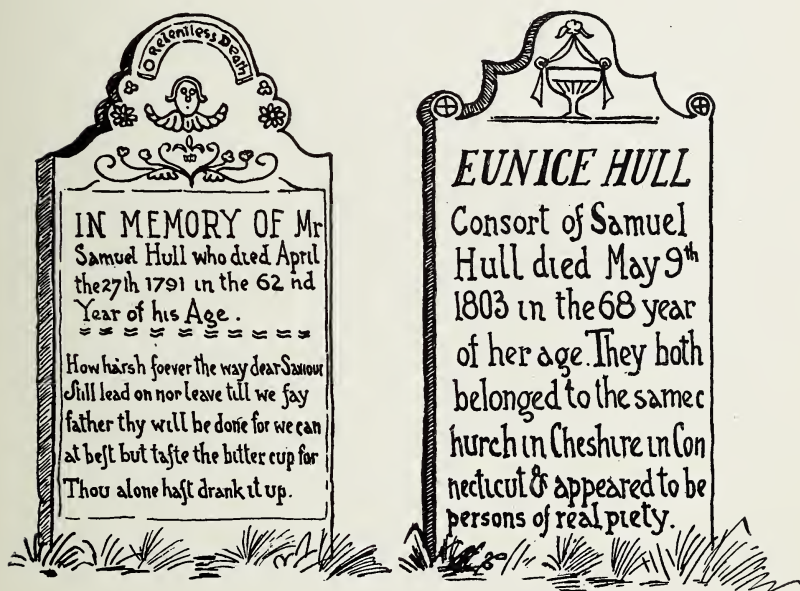 O Relentless Death
IN MEMORY OF Mr
Samuel Hull who died April
the 27th 1791 in the 62 nd
Year of his Age.
How harsh soever the way dear Saviour
Still lead on nor leave till we ſay
father thy will be done for we can
at beſt but taſte the bitter cup for
Thou alone haſt drank it up.
EUNICE HULL
Consort of Samuel
Hull died May 9th
1803 in the 68 year
of her age. They both
belonged to the same c
hurch in Cheshire in Con
necticut & appeared to be
persons of real piety.